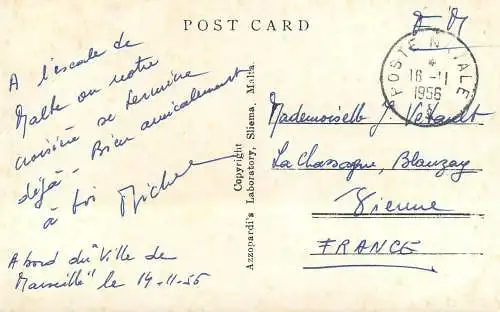 POST CARD
F. M
A l'escale de
Malte où notre
croisière se termine
déjà - Bien amicalement
à toi Michel
A bord du "Ville de
Marseille" le 14-11-56
Copyright
Azzopardi's Laboratory, Sliema, Malta.
POSTE NAVALE
*
16-11
1956
Mademoiselle J.
La Chassagne, Blanzay
Vienne
FRANCE